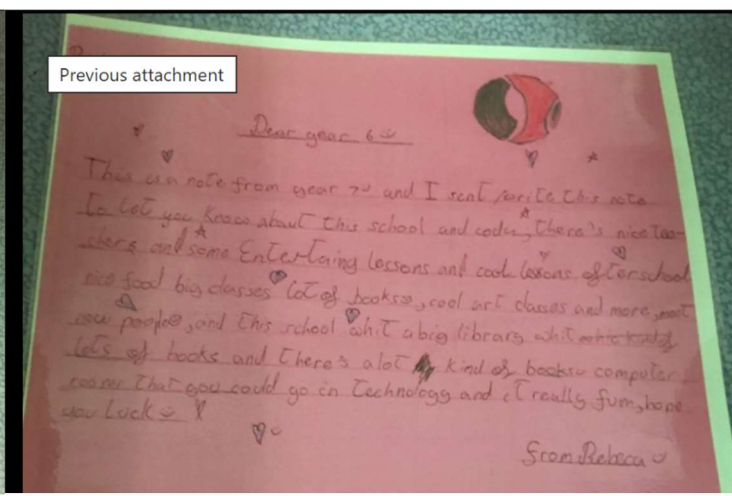 Previous attachment
Dear year 6
This is a note from year 7 and I sent/write this note
to let you know about this school and , there's nice tea-
chers and some Entertaing lessons and cool lessons after school
nice food big classes lot of books, cool art classes and more, meet
new people, and this school whit a big library whit
lots of books and there's alot kind of books computer
rooner that you could go in Technology and it really fum, hope
you Luck
from Rebeca